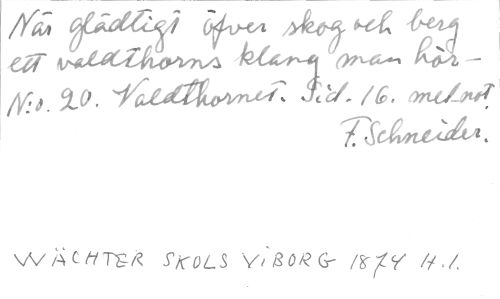 När glädtigt öfver skog och berg
ett valdthorns klang man hör –
N:o. 20. Valdthornet. Sid. 16. mel. not.
F. Schneider.
WÄCHTER SKOLS VIBORG 1874 H.1.